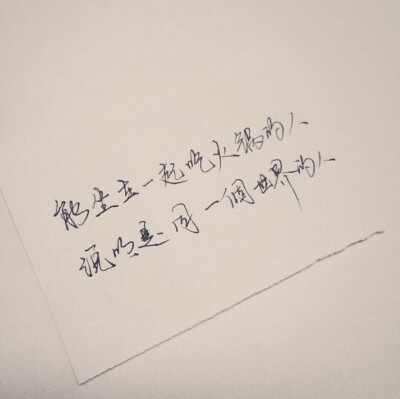 能坐在一起吃火锅的人
说明是同一個世界的人